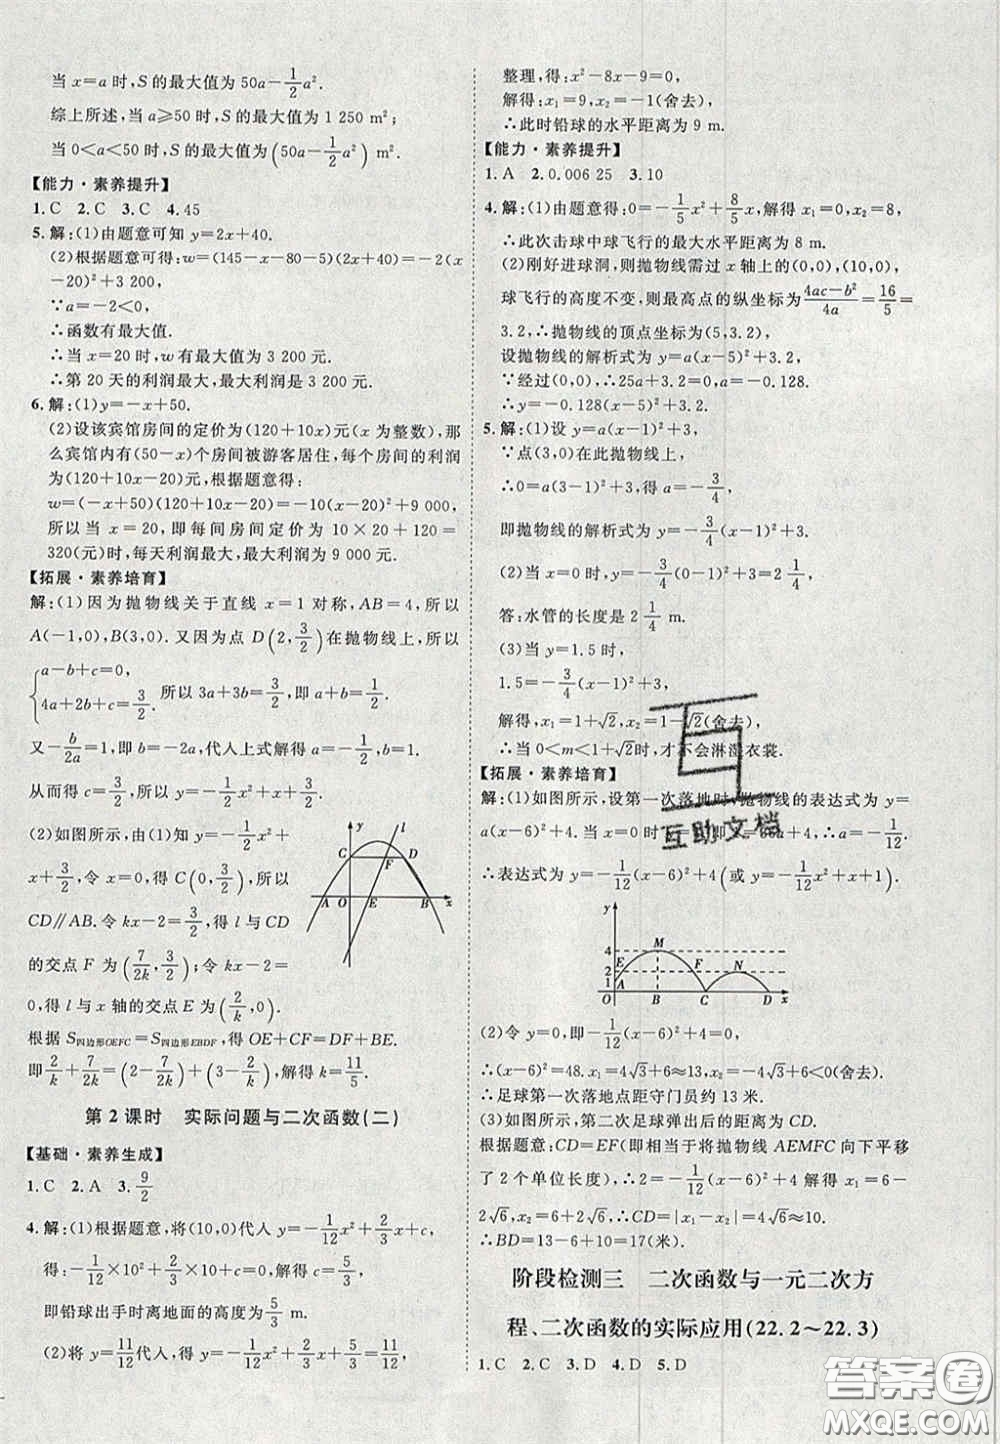 当 x=a 时,S 的最大值为 50a-1/2a².
综上所述,当 a⩾50 时,S 的最大值为 1 250 m²;
当 0<a<50 时,S 的最大值为(50a-1/2a²) m².
【能力·素养提升】
1.C 2.C 3.C 4.45
5.解:(1)由题意可知 y=2x+40.
(2)根据题意可得:w=(145-x-80-5)(2x+40)=-2(x
-20)²+3 200,
∵a=-2<0,
∴函数有最大值.
∴当 x=20 时,w 有最大值为 3 200 元.
∴第 20 天的利润最大,最大利润是 3 200 元.
6.解:(1)y=-x+50.
(2)设该宾馆房间的定价为(120+10x)元(x 为整数),那
么宾馆内有(50-x)个房间被游客居住,每个房间的利润
为(120+10x-20)元,根据题意得:
w=(-x+50)(120+10x-20)=-10(x-20)²+9 000,
所以当 x=20,即每间房间定价为 10×20+120=
320(元)时,每天利润最大,最大利润为 9 000 元.
【拓展·素养培育】
解:(1)因为抛物线关于直线 x=1 对称,AB=4,所以
A(-1,0),B(3,0).又因为点 D(2,3/2)在抛物线上,所以
{a-b+c=0,
4a+2b+c=3/2. 所以 3a+3b=3/2,即 a+b=1/2.
又-b/2a=1,即 b=-2a,代入上式解得 a=-1/2,b=1.
从而得 c=3/2.即 y=-1/2x²+x+3/2.
(2)如图所示,由(1)知 y=-1/2x²+
x+3/2,令 x=0,得 C(0,3/2),所以
CD∥AB.令 kx-2=3/2,得 l 与 CD
的交点 F 为(7/2k,3/2);令 kx-2=
0,得 l 与 x 轴的交点 E 为(2/k,0).
y l C D F A O E B x
根据 S四边形OEFC=S四边形EBDF,得 OE+CF=DF+BE.
即2/k+7/2k=(2-7/2k)+(3-2/k),解得 k=11/5.
第 2 课时 实际问题与二次函数(二)
【基础·素养生成】
1.C 2.A 3.9/2
4.解:(1)根据题意,将(10,0)代入 y=-1/12x²+2/3x+c,
得:-1/12×10²+2/3×10+c=0,解得:c=5/3,
即铅球出手时离地面的高度为5/3 m.
(2)将 y=5/12代入,得:-1/12x²+2/3x+5/3=5/12,
整理,得:x²-8x-9=0,
解得:x₁=9,x₂=-1(舍去),
∴此时铅球的水平距离为 9 m.
【能力·素养提升】
1.A 2.0.006 25 3.10
4.解:(1)由题意得:0=-1/5x²+8/5x,解得 x₁=0,x₂=8,
∴此次击球中球飞行的最大水平距离为 8 m.
(2)刚好进球洞,则抛物线需过 x 轴上的(0,0),(10,0),
球飞行的高度不变,则最高点的纵坐标为4ac-b²/4a=16/5=
3.2,∴抛物线的顶点坐标为(5,3.2),
设抛物线的解析式为 y=a(x-5)²+3.2,
∵经过(0,0),∴25a+3.2=0,∴a=-0.128.
∴y=-0.128(x-5)²+3.2.
5.解:(1)设 y=a(x-1)²+3,
∵点(3,0)在此抛物线上,
∴0=a(3-1)²+3,得 a=-3/4,
即抛物线的解析式为 y=-3/4(x-1)²+3.
(2)当 x=0 时,y=-3/4(0-1)²+3=9/4.
答:水管的长度是 2 1/4 m.
(3)当 y=1.5 时,
1.5=-3/4(x-1)²+3,
解得,x₁=1+√2,x₂=1-√2(舍去),
∴当 0<m<1+√2时,才不会淋湿衣裳.
【拓展·素养培育】
解:(1)如图所示,设第一次落地时,抛物线的表达式为 y=
a(x-6)²+4.由已知:当 x=0 时 y=1,即 1=36a+4,∴a=-1/12.
∴表达式为 y=-1/12(x-6)²+4(或 y=-1/12x²+x+1).
y 4 2 E M F N A O B C D x
(2)令 y=0,即-1/12(x-6)²+4=0,
∴(x-6)²=48.∴x₁=4√3+6≈13,x₂=-4√3+6<0(舍去).
∴足球第一次落地距守门员约 13 米.
(3)如图所示,第二次足球弹出后的距离为 CD,
根据题意:CD=EF(即相当于将抛物线 AEMFC 向下平移
了 2 个单位长度),∴2=-1/12(x-6)²+4 解得 x₁=6-
2√6,x₂=6+2√6.∴CD=|x₁-x₂|=4√6≈10(米).
∴BD=13-6+10=17(米).
阶段检测三 二次函数与一元二次方
程、二次函数的实际应用(22.2～22.3)
1.C 2.C 3.D 4.D 5.D
互助文档
答案圈
MXQE.COM